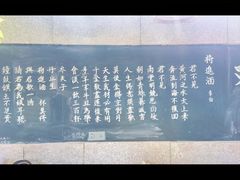 將進酒 李白
君不見
黃河之水天上來
奔流到海不復回
君不見
高堂明鏡悲白髮
朝如青絲暮成雪
人生得意須盡歡
莫使金樽空對月
天生我材必有用
千金散盡還復來
烹羊宰牛且為樂
會須一飲三百杯
岑夫子
丹丘生
將進酒 杯莫停
與君歌一曲
請君為我傾耳聽
鐘鼓饌玉不足貴